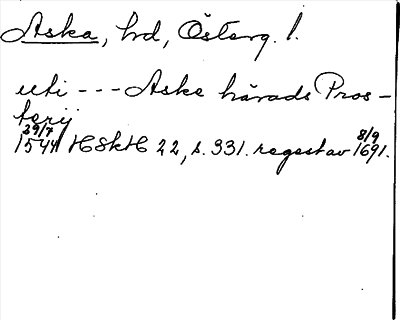 Aska, hd, Österg. l.
uti --- Aske härads Pros-
terij
29/7 1544 HSkH 22, s. 331. regest av 8/9 1691.